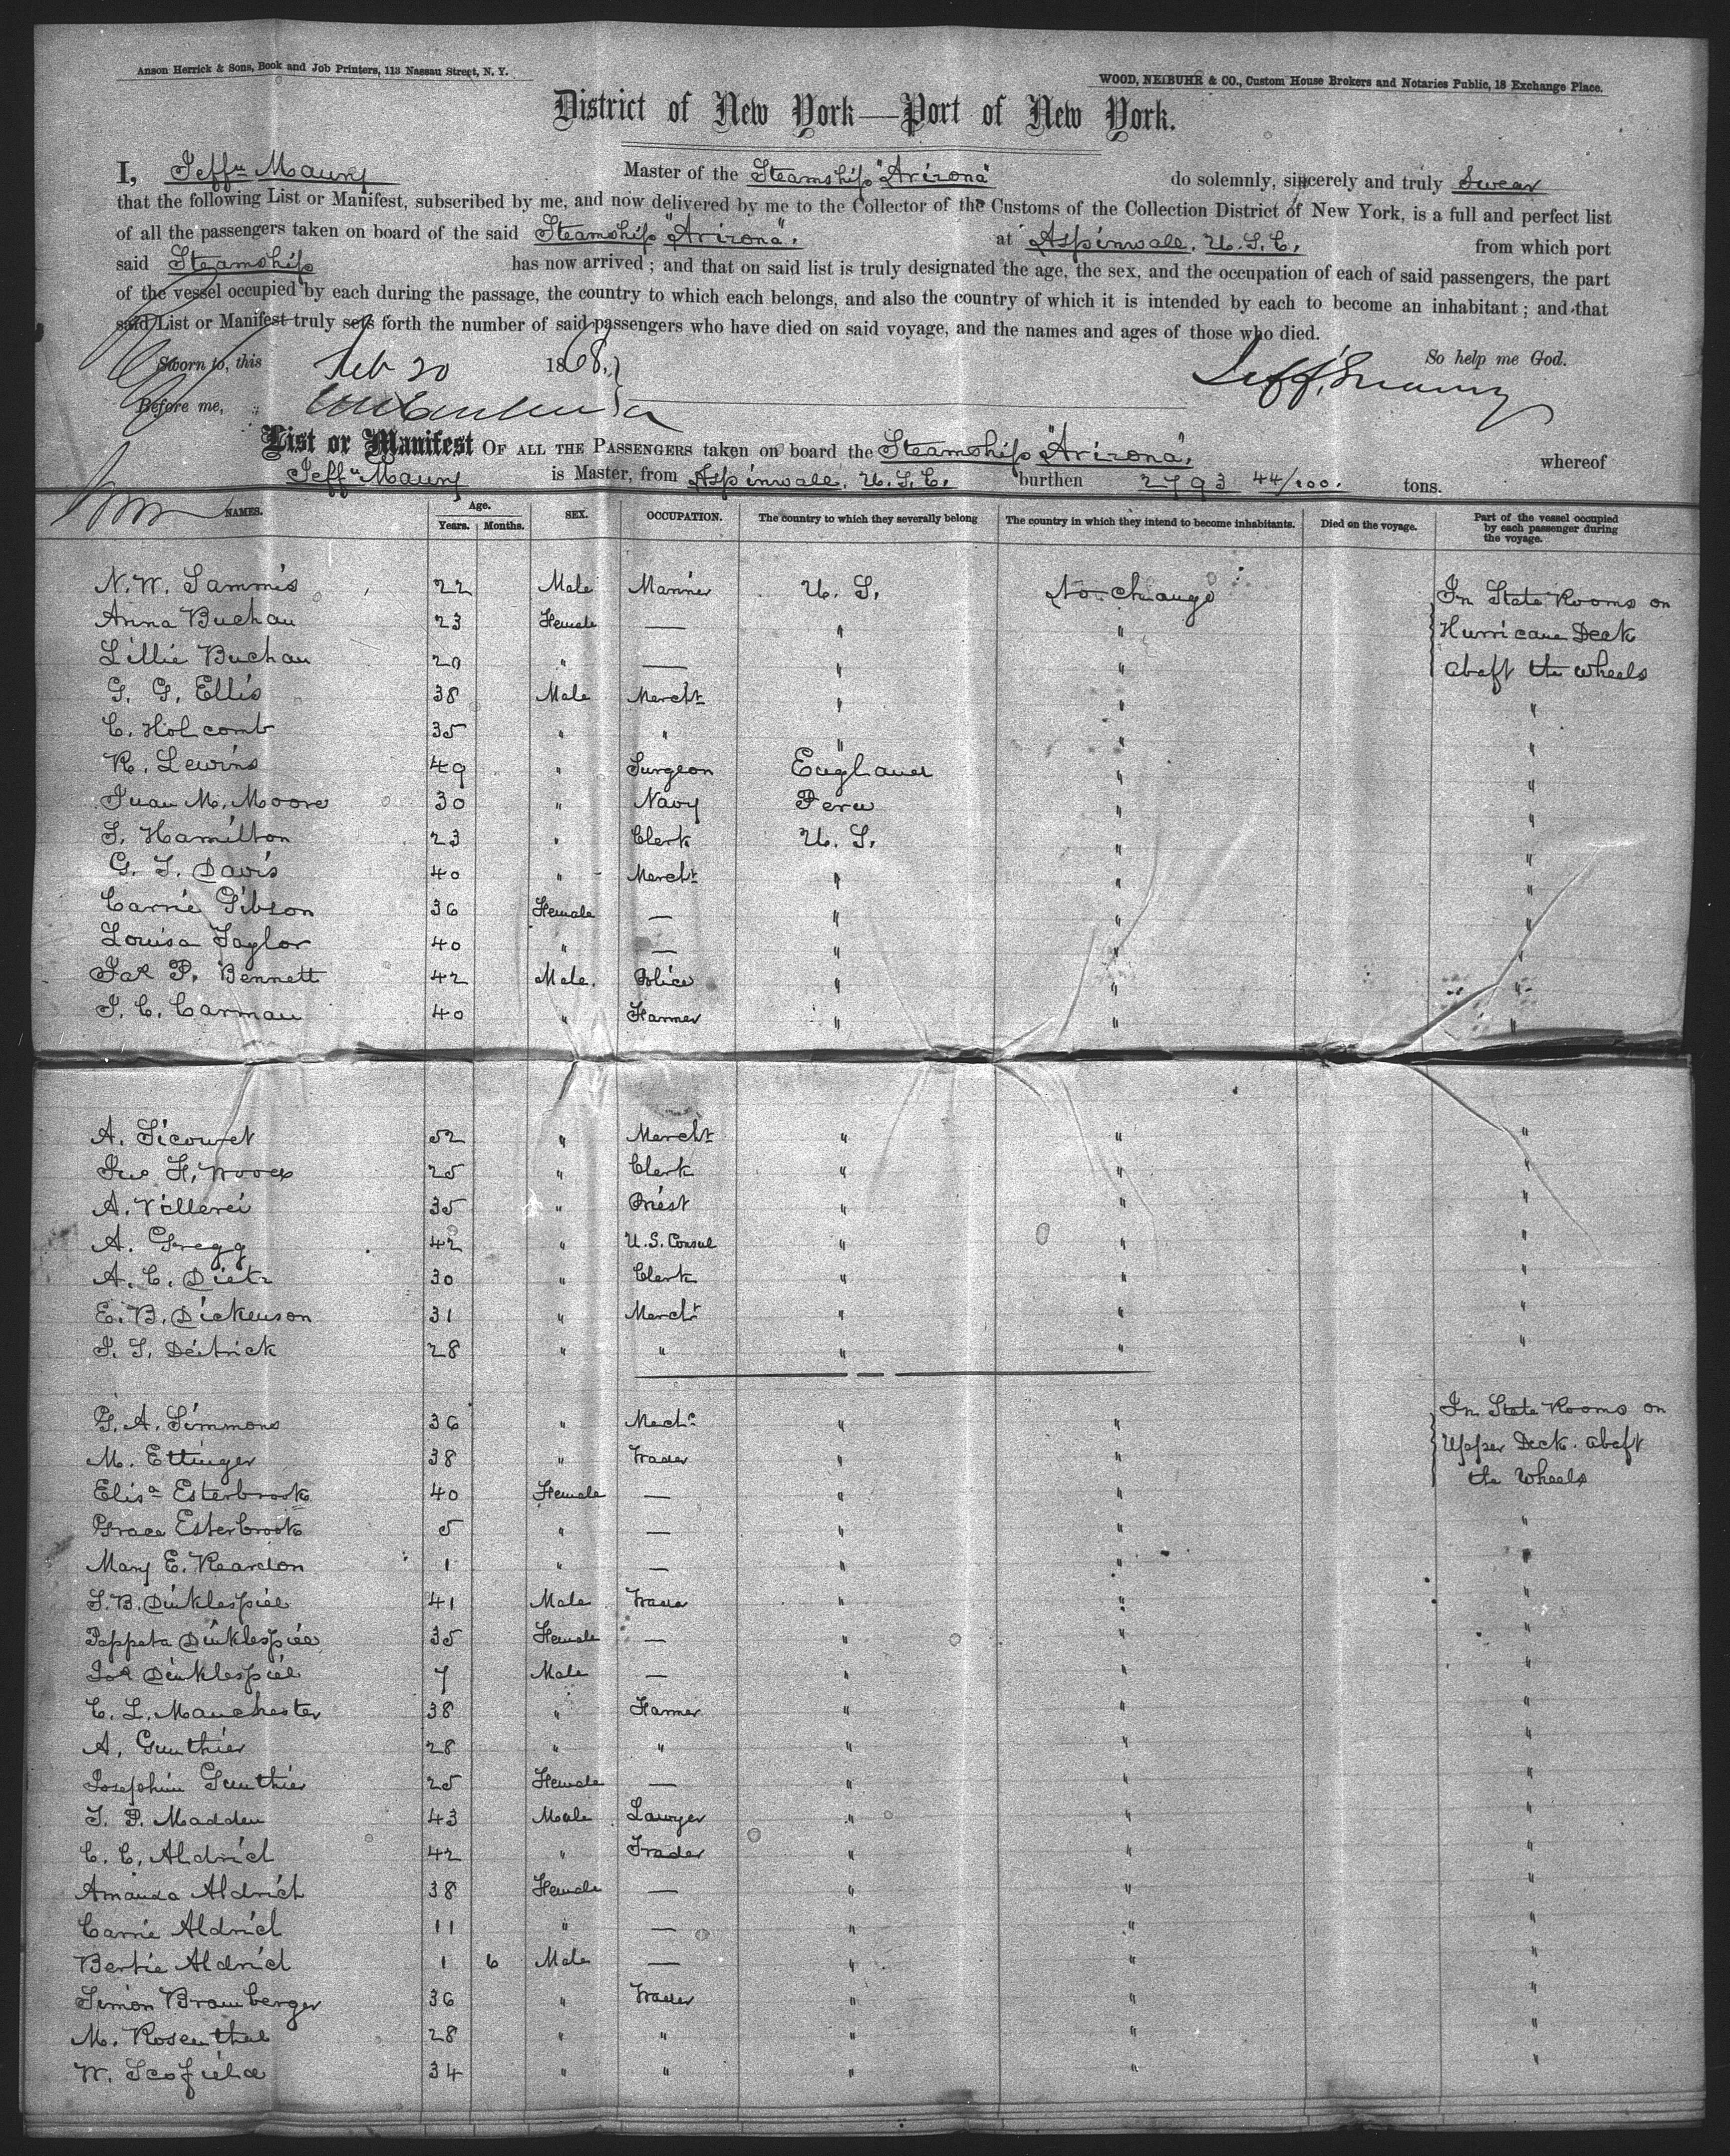 Anson Herrick & Sons, Book and Job Printers, 113 Nassau Street, N. Y.
WOOD, NEIBUHR & CO., Custom House Brokers and Notaries Public, 18 Exchange Place.
District of New York—Port of New York.
I, Jeffn Maury Master of the Steamship "Arizona" do solemnly, sincerely and truly Swear
that the following List or Manifest, subscribed by me, and now delivered by me to the Collector of the Customs of the Collection District of New York, is a full and perfect list
of all the passengers taken on board of the said Steamship "Arizona". at Aspinwall. U.S.C. from which port
said Steamship has now arrived; and that on said list is truly designated the age, the sex, and the occupation of each of said passengers, the part
of the vessel occupied by each during the passage, the country to which each belongs, and also the country of which it is intended by each to become an inhabitant; and that
said List or Manifest truly sets forth the number of said passengers who have died on said voyage, and the names and ages of those who died.
So help me God.
Sworn to, this Feb 20 1868.
Jeff. Maury
Before me,
List or Manifest OF ALL THE PASSENGERS taken on board the Steamship "Arizona". whereof
Jeffn Maury is Master, from Aspinwall. U.S.C. burthen 2793 44/100. tons.
NAMES. Age. Years. Months. SEX. OCCUPATION. The country to which they severally belong The country in which they intend to become inhabitants. Died on the voyage. Part of the vessel occupied by each passenger during the voyage.
N. W. Sammis 22 Male Mariner U. S. No change In State Rooms on
Anna Buchan 23 Female — " " Hurricane Deck
Lillie Buchan 20 " — " " abaft the wheels
G. G. Ellis 38 Male Mercht " " "
C. Holcomb 35 " " " " "
R. Lewins 49 " Surgeon England " "
Juan M. Moore 30 " Navy Peru " "
S. Hamilton 23 " Clerk U. S. " "
G. T. Davis 40 " Mercht " " "
Carrie Gibson 36 Female — " " "
Louisa Taylor 40 " — " " "
Jas P. Bennett 42 Male. Police " " "
J. C. Carman 40 " Farmer " " "
A. Sicouret 52 " Mercht " " "
Jno H. Wood 25 " Clerk " " "
A. Villerei 35 " Priest " " "
A. Gregg 42 " U.S. Consul " " "
A. C. Dietz 30 " Clerk " " "
E. B. Dickenson 31 " Mercht " " "
J. S. Deitrick 28 " " " " "
G. A. Simmons 36 " Mechc " " In State Rooms on
M. Ettinger 38 " Trader " " Upper Deck. abaft
Elisa Esterbrook 40 Female — " " the Wheels
Grace Esterbrook 5 " — " " "
Mary E. Reardon 1 " — " " "
S. B. Dinklespiel 41 Male Trader " " "
Peppeta Dinklespiel 35 Female — " " "
Jos Dinklespiel 7 Male — " " "
C. L. Manchester 38 " Farmer " " "
A. Gunthier 28 " " " " "
Josephine Gunthier 25 Female — " " "
J. P. Madden 43 Male Lawyer " " "
C. C. Aldrich 42 " Trader " " "
Amanda Aldrich 38 Female — " " "
Carrie Aldrich 11 " — " " "
Bertie Aldrich 1 6 Male — " " "
Simon Bramberger 36 " Trader " " "
M. Rosenthal 28 " " " " "
W. Scofield 34 " " " " "